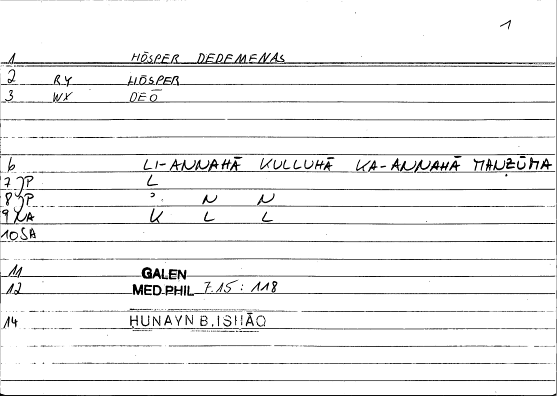 1
1 HŌSPER DEDEMENAS
2 RY HŌSPER
3 WX DEŌ
6 LI-ANNAHĀ KULLUHĀ KA-ANNAHĀ MANẒŪMA
7 JP L
8 JP ʾ N N
9 NA K L L
10 SA
11 GALEN
12 MED.PHIL 7.15 : 118
14 HUNAYN B. ISḤĀQ